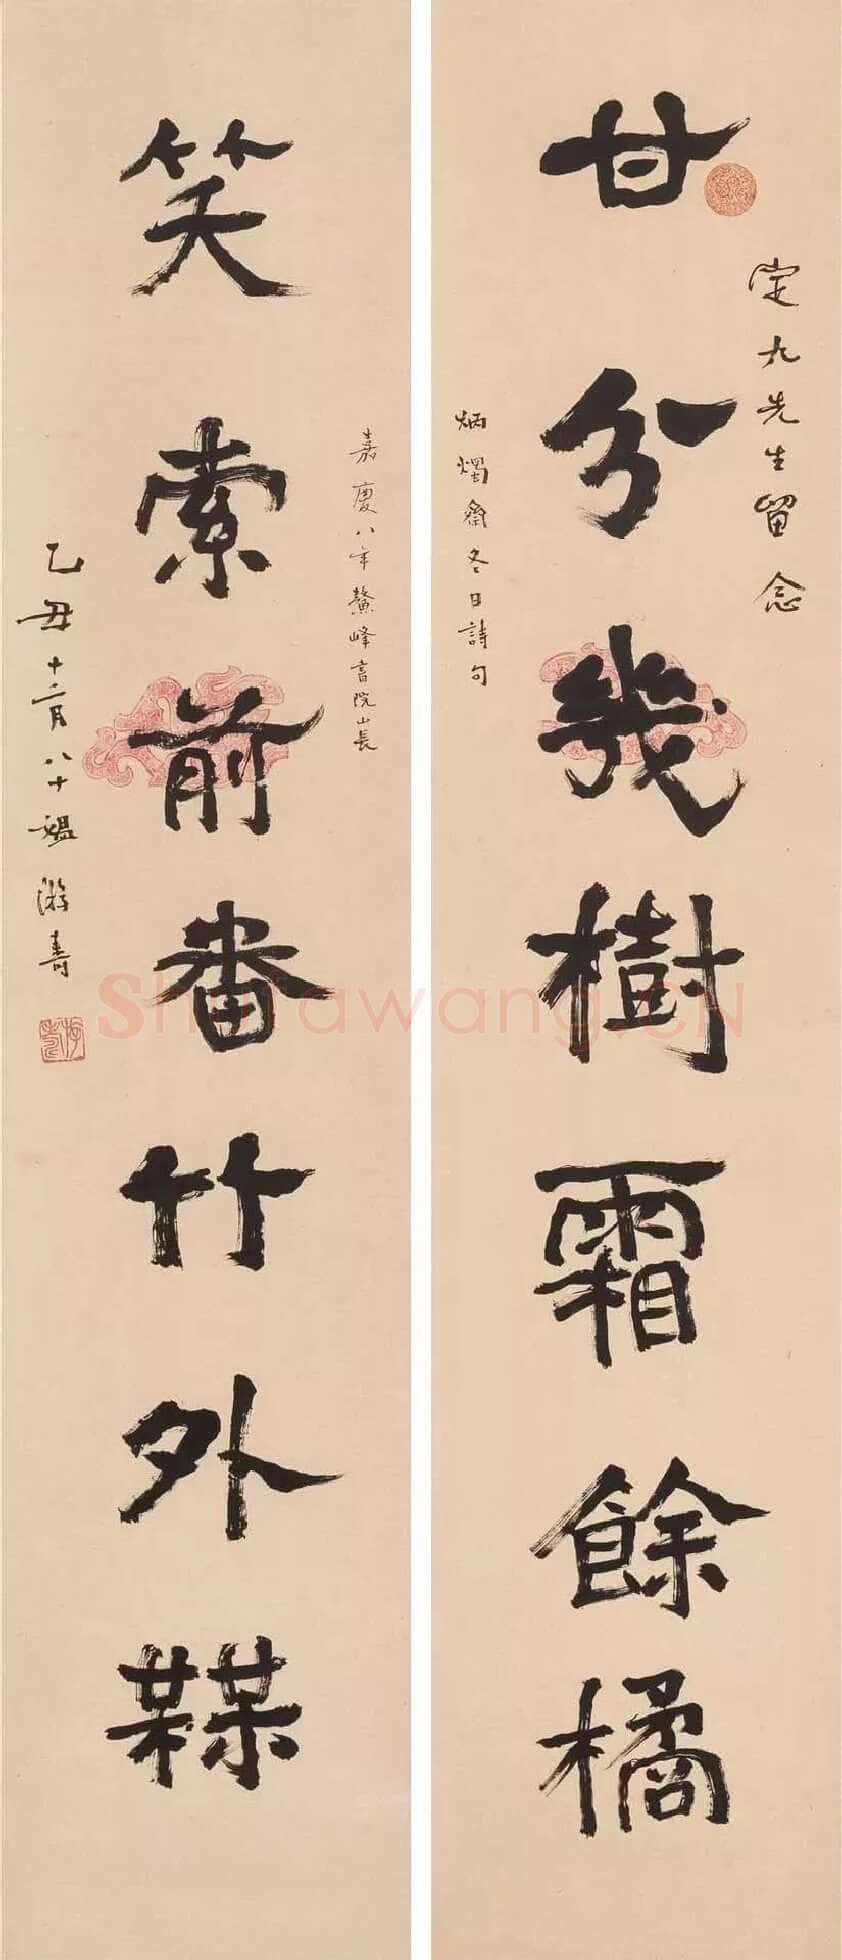 甘分幾樹霜餘橘
定九先生留念
炳燭齋冬日詩句
笑索前番竹外
嘉慶八年鰲峰書院山長
乙丑十二月八十媼游寿
shufawang.cn